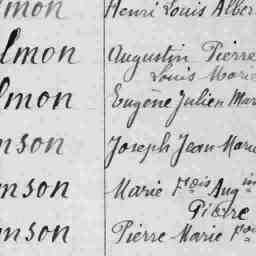 lmon Henri Louis Alber
lmon Augustin Pierre
Louis Marie
lmon Eugène Julien Mar
nson Joseph Jean Marie
nson Marie Fçois Augin
Pierre
nson Pierre Marie Fço